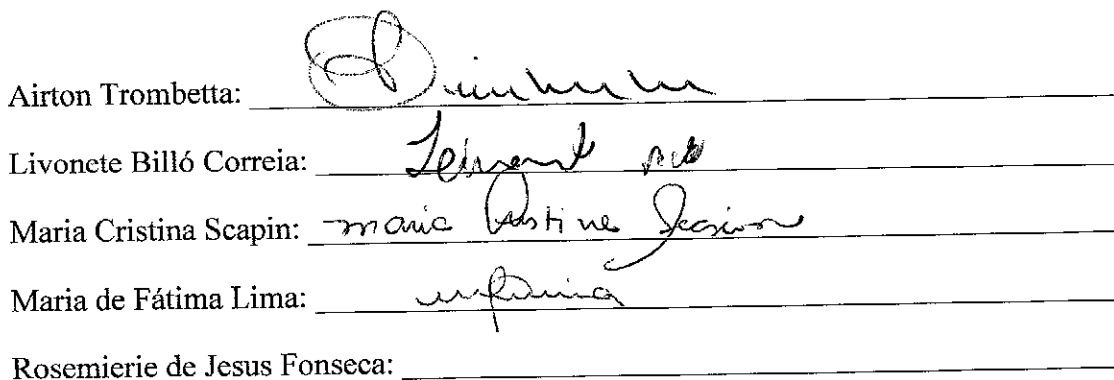 Airton Trombetta:
Livonete Billó Correia:
Maria Cristina Scapin: Maria Cristina Scapin
Maria de Fátima Lima:
Rosemierie de Jesus Fonseca: